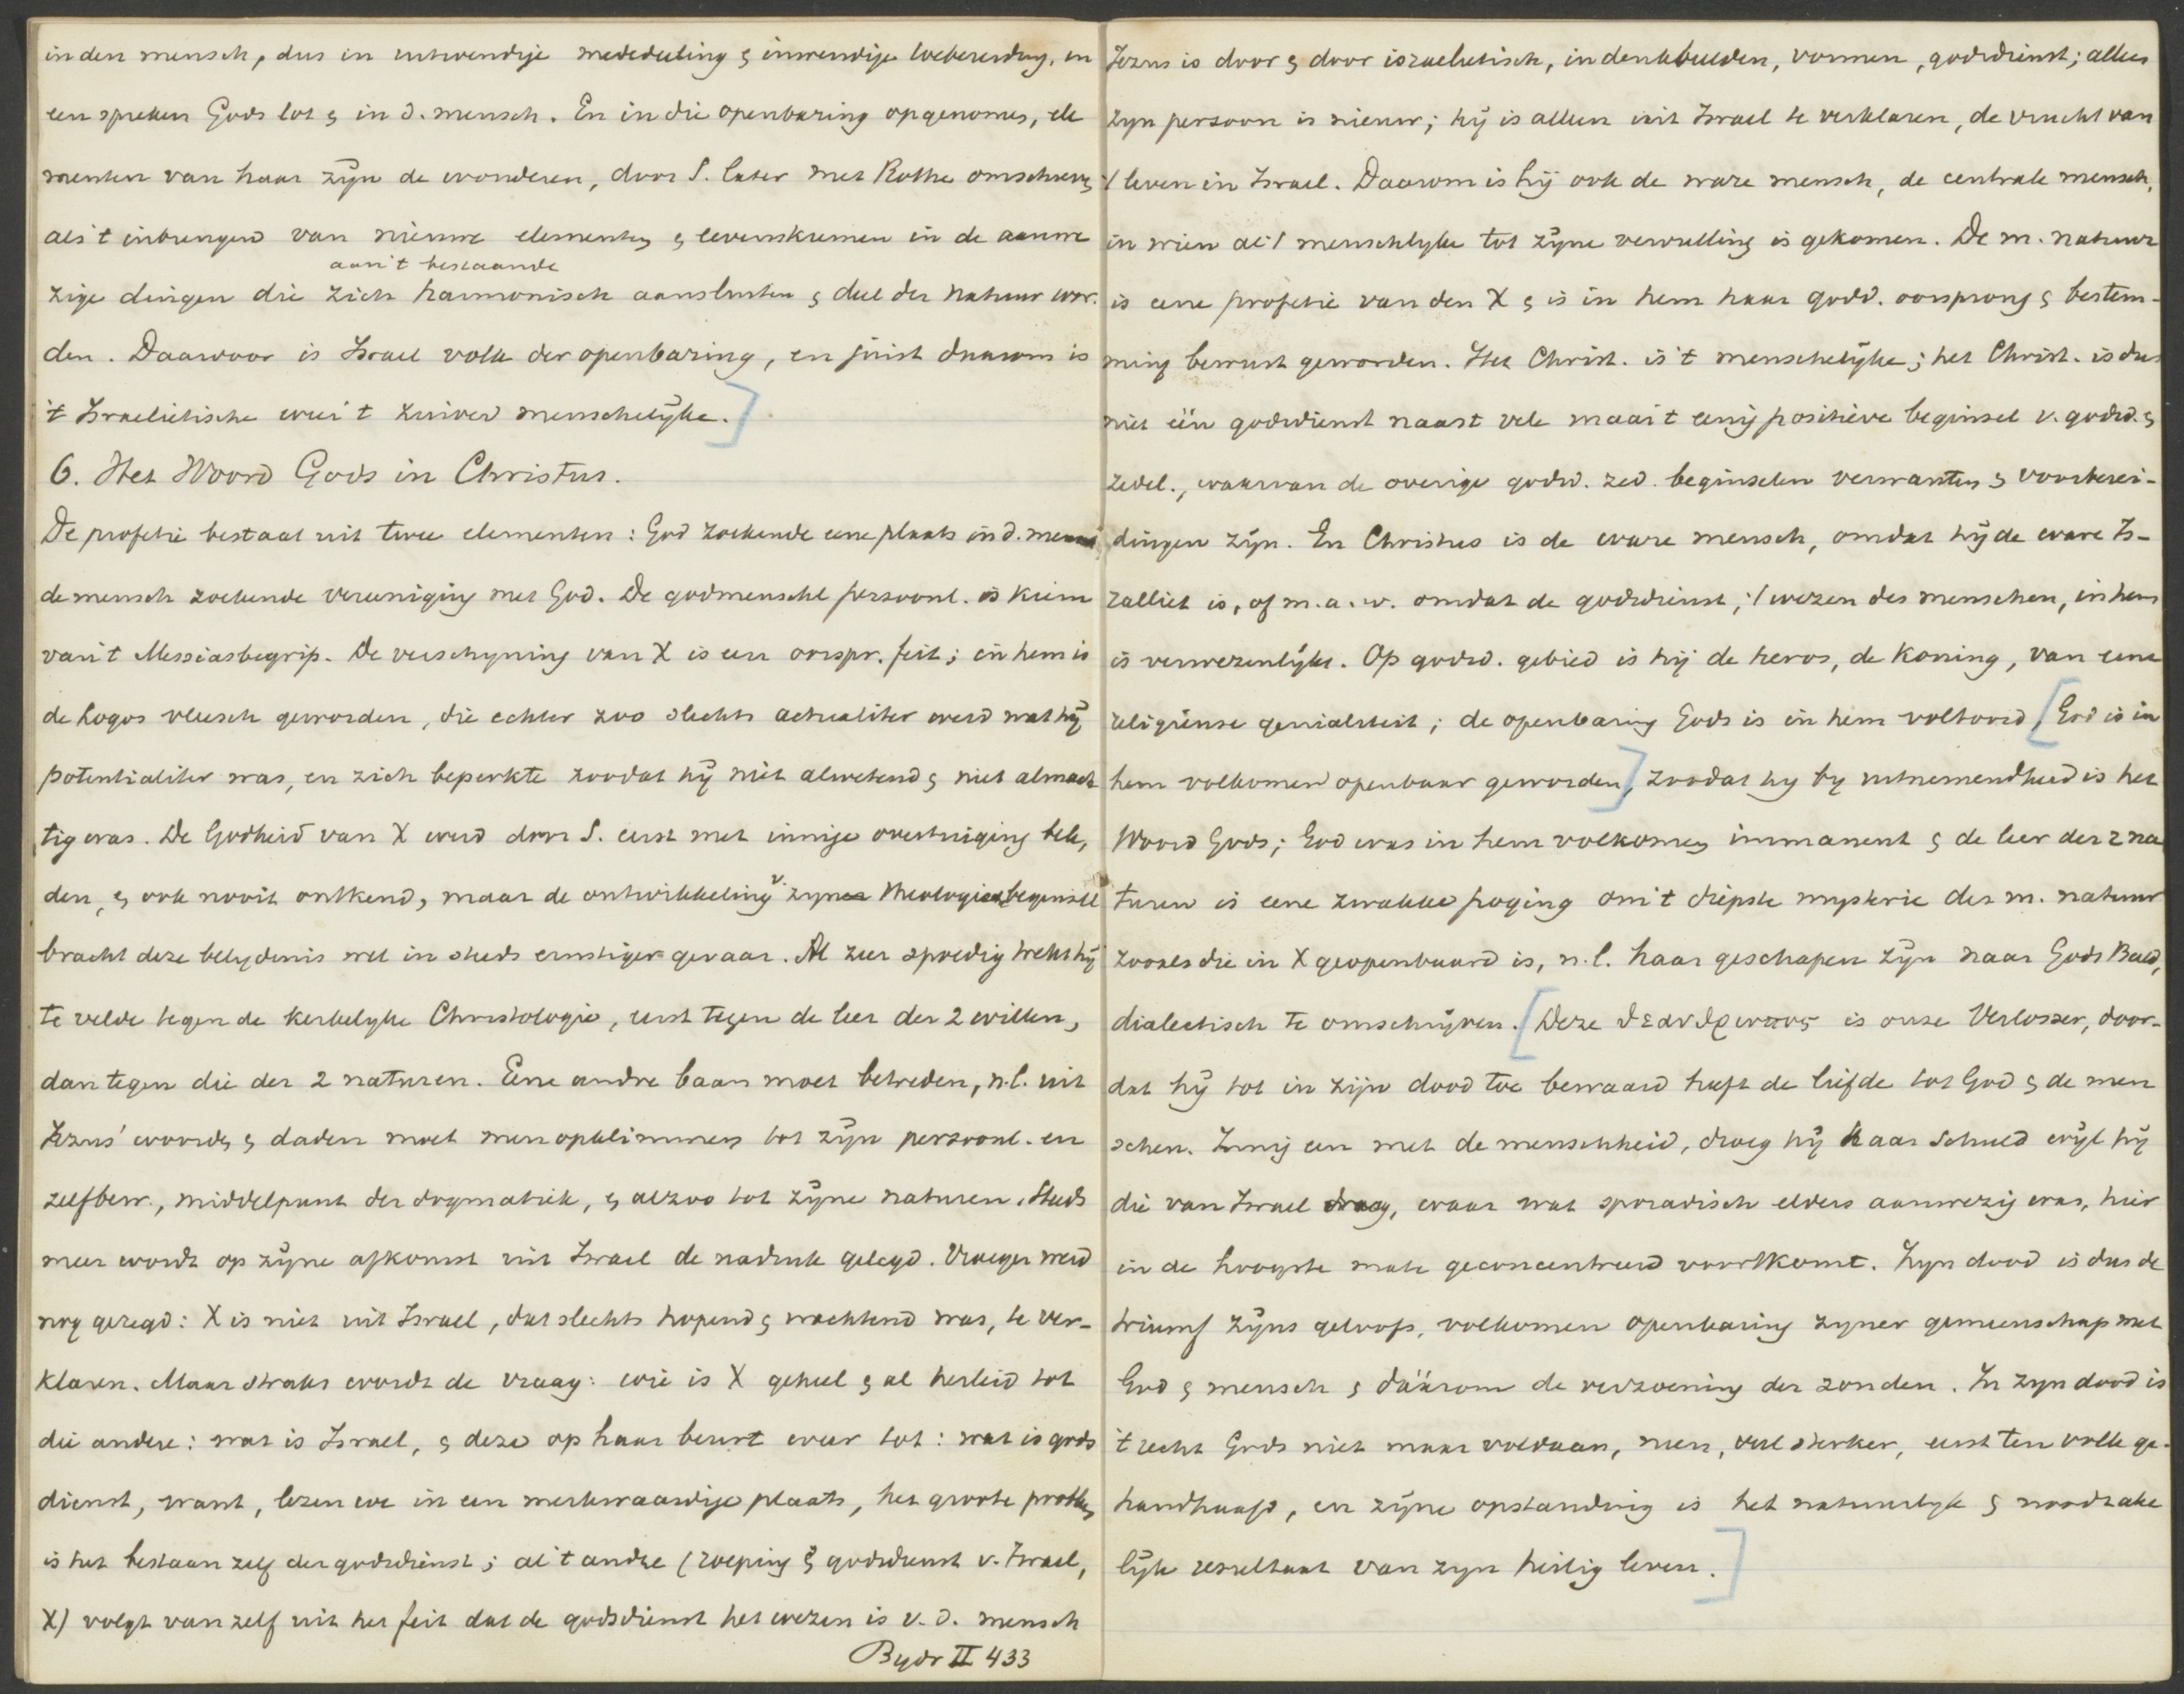 in den mensch, dus in uitwendige mededeeling & inwendige toebereiding, in
een spreken Gods tot & in d. mensch. En in die openbaring opgenomen, ele
menten van haar zijn de wonderen, door S. later met Rothe omschreven
als 't inbrengen van nieuwe elementen & levenskiemen in de aanwe
zige dingen die zich harmonisch aan 't bestaande aansluiten & deel der natuur wor-
den. Daarvoor is Israel volk der openbaring, en juist daarom is
't Israelietische weer 't zuiver menschelijke.]
6. Het Woord Gods in Christus.
De profetie bestaat uit twee elementen: God zoekende eene plaats in d. mensch
de mensch zoekende vereeniging met God. De godmenschl persoonl. is kiem
van 't Messiasbegrip. De verschyning van X is een oorspr. feit; in hem is
de Logos vleesch geworden, die echter zoo slechts actualiter werd wat hij
potentialiter was, en zich beperkte zoodat hij niet alwetend & niet almach
tig was. De Godheid van X werd door S. eerst met innige overtuiging bele,
den, & ook nooit ontkend, maar de ontwikkeling v. zyn theologie beginsel
bracht deze belydenis wel in steeds ernstiger gevaar. Al zeer spoedig trekt hij
te velde tegen de kerkelyke Christologie, eerst tegen de leer der 2 willen,
dan tegen die der 2 naturen. Eene andre baan moet betreden, n.l. uit
Jezus' woorden & daden moet men opklimmen tot zijn persoonl. en
zelfbew., middelpunt der dogmatiek, & alzoo tot zijne naturen. Steeds
meer wordt op zijne afkomst uit Israel de nadruk gelegd. Vroeger werd
nog gezegd: X is niet uit Israel, dat slechts hopend & wachtend was, te ver-
klaren. Maar straks wordt de vraag: wie is X geheel & al herleid tot
die andere: wat is Israel, & deze op haar beurt weer tot: wat is gods
dienst, want, lezen we in een merkwaardige plaats, het groote probleem
is het bestaan zelf der godsdienst; al 't andre (roeping & godsdienst v. Israel,
X) volgt van zelf uit het feit dat de godsdienst het wezen is v. d. mensch
Bydr II 433
Jezus is door & door israelietisch, in denkbeelden, vormen, godsdienst; alleen
zyn persoon is nieuw; hij is alleen uit Israel te verklaren, de vrucht van
't leven in Israel. Daarom is hij ook de ware mensch, de centrale mensch,
in wien al 't menschlyke tot zijne vervulling is gekomen. De m. natuur
is eene profetie van den X & is in hem haar godd. oorsprong & bestem-
ming bewust geworden. Het Christ. is 't menschelijke; het Christ. is dus
niet één godsdienst naast vele maar 't eenig positieve beginsel v. godsd. &
zedel., waarvan de overige godsd. zed. beginselen verwanten & voorberei-
dingen zijn. En Christus is de ware mensch, omdat hij de ware Is-
raëliet is, of m.a.w. omdat de godsdienst, 't wezen des menschen, in hem
is verwezenlijkt. Op godsd. gebied is hij de heros, de koning, van eene
religieuse genialiteit; de openbaring Gods is in hem voltooid, [God is in
hem volkomen openbaar geworden], zoodat hy by uitnemendheid is het
Woord Gods; God was in hem volkomen immanent & de leer der 2 na
turen is eene zwakke poging om 't diepste mysterie der m. natuur
zooals die in X geopenbaard is, n.l. haar geschapen zijn naar Gods Beeld,
dialectisch te omschrijven. [Deze θεανθρωπος is onze Verlosser, door-
dat hij tot in zijn dood toe bewaard heeft de liefde tot God & de men
schen. Innig een met de menschheid, droeg hij haar schuld wijl hij
die van Israel droeg, waar wat sporadisch elders aanwezig was, hier
in de hoogste mate geconcentreerd voorkomt. Zyn dood is dus de
triumf zijns geloofs, volkomen openbaring zyner gemeenschap met
God & mensch & dáárom de verzoening der zonden. In zyn dood is
't recht Gods niet maar voldaan, neen, veel sterker, eerst ten volle ge-
handhaafd, en zijne opstanding is het natuurlyk & noodzake
lijk resultaat van zyn heilig leven.]